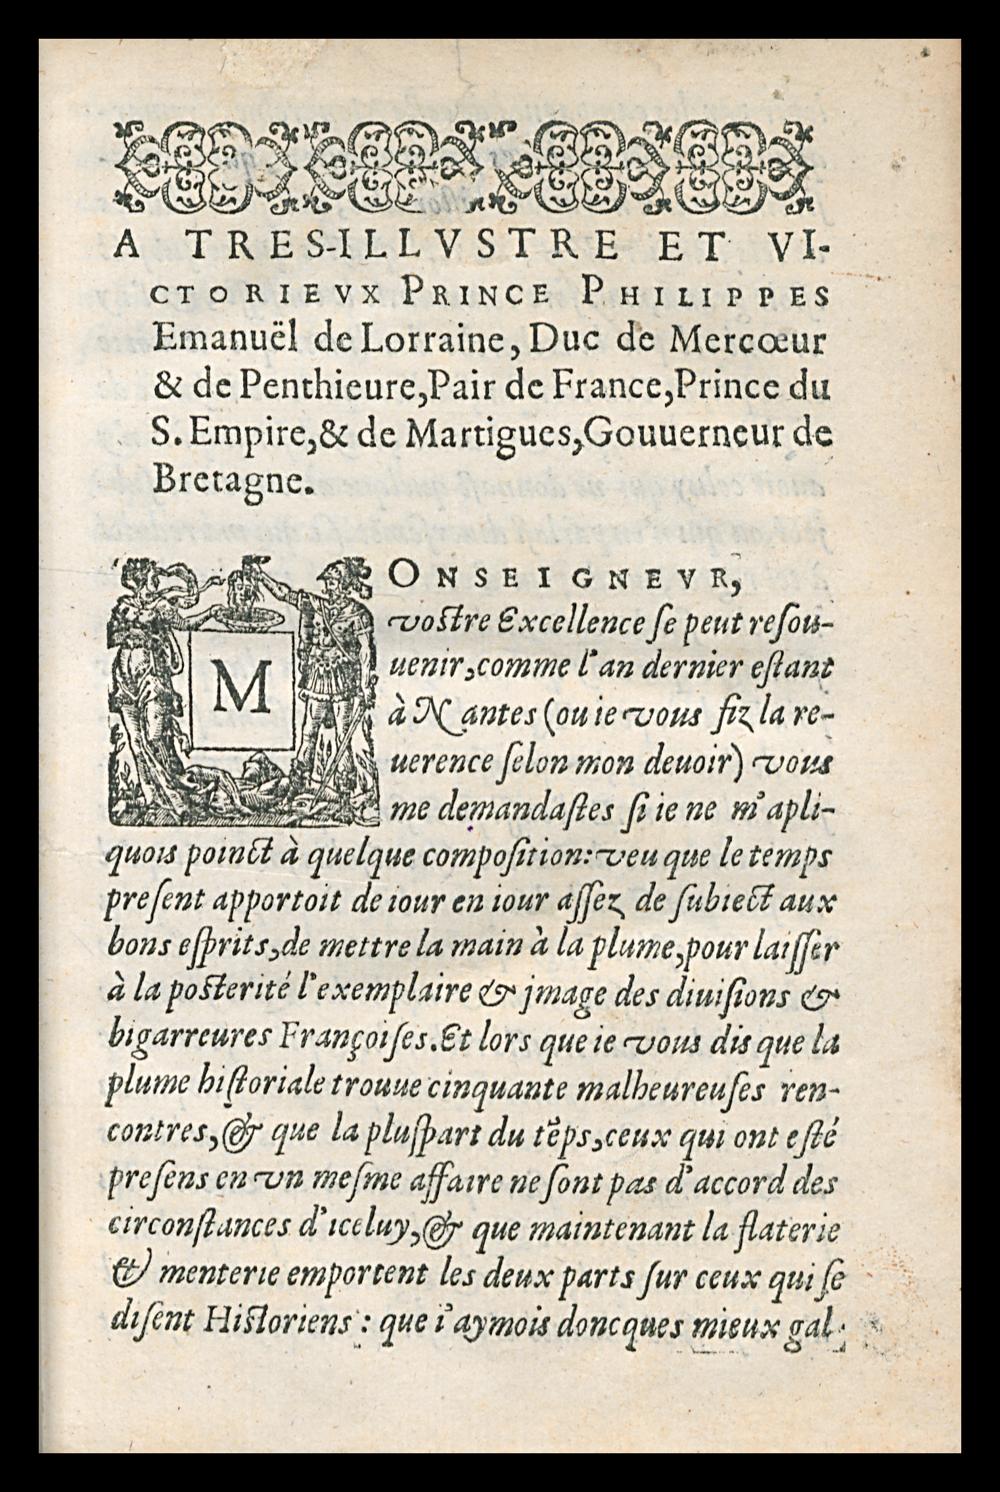 A TRES-ILLVSTRE ET VI-
CTORIEVX PRINCE PHILIPPES
Emanuël de Lorraine, Duc de Mercœur
& de Penthieure, Pair de France, Prince du
S. Empire, & de Martigues, Gouuerneur de
Bretagne.
MONSEIGNEVR,
vostre Excellence se peut resou-
uenir, comme l'an dernier estant
à Nantes (ou ie vous fiz la re-
uerence selon mon deuoir) vous
me demandastes si ie ne m'apli-
quois poinct à quelque composition: veu que le temps
present apportoit de iour en iour assez de subiect aux
bons esprits, de mettre la main à la plume, pour laisser
à la posterité l'exemplaire & jmage des diuisions &
bigarreures Françoises. Et lors que ie vous dis que la
plume historiale trouue cinquante malheureuses ren-
contres, & que la pluspart du tẽps, ceux qui ont esté
presens en vn mesme affaire ne sont pas d'accord des
circonstances d'iceluy, & que maintenant la flaterie
& menterie emportent les deux parts sur ceux qui se
disent Historiens: que i'aymois doncques mieux gal-